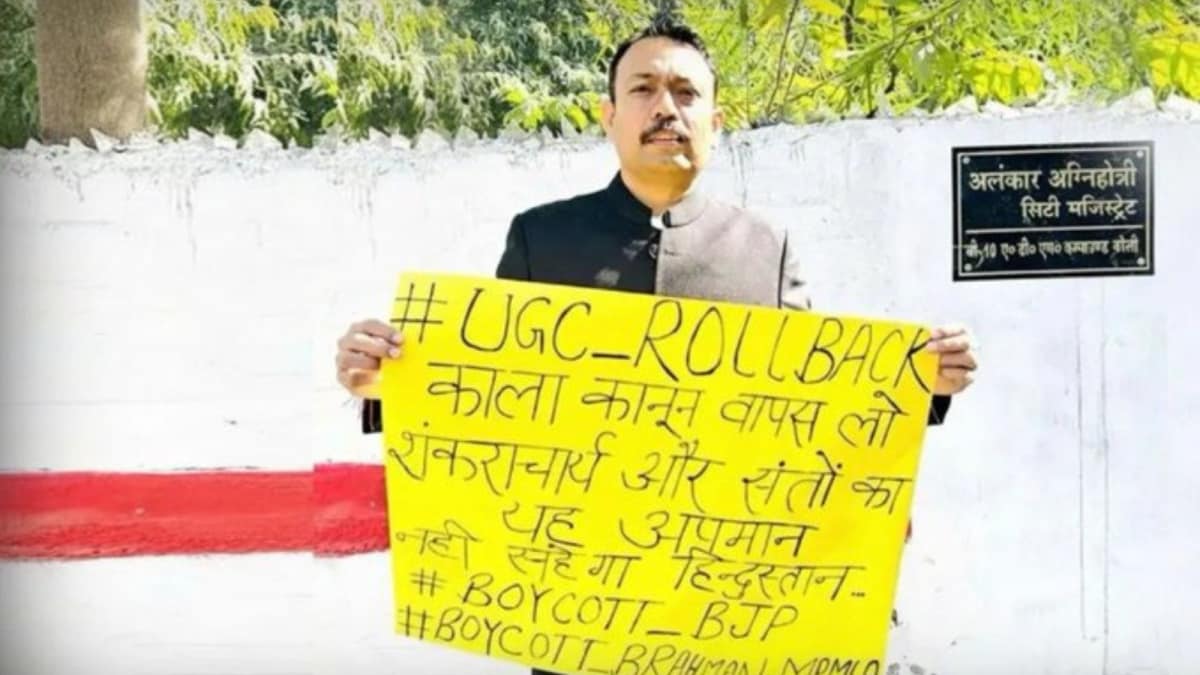 अलंकार अग्निहोत्री
सिटी मजिस्ट्रेट
#UGC_ROLLBACK
काला कानून वापस लो
शंकराचार्य और संतों का
यह अपमान
नही सहेगा हिन्दुस्तान...
# BOYCOTT_BJP
#BOYCOTT_BRAHMAN_